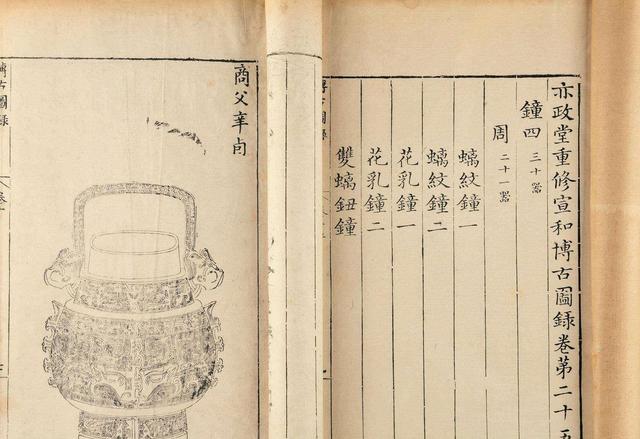 亦政堂重修宣和博古圖錄卷第二十五
鐘四 三十器
周 二十一器
螭紋鐘一
螭紋鐘二
花乳鐘一
花乳鐘二
雙螭鈕鐘
商父辛卣
博古圖錄